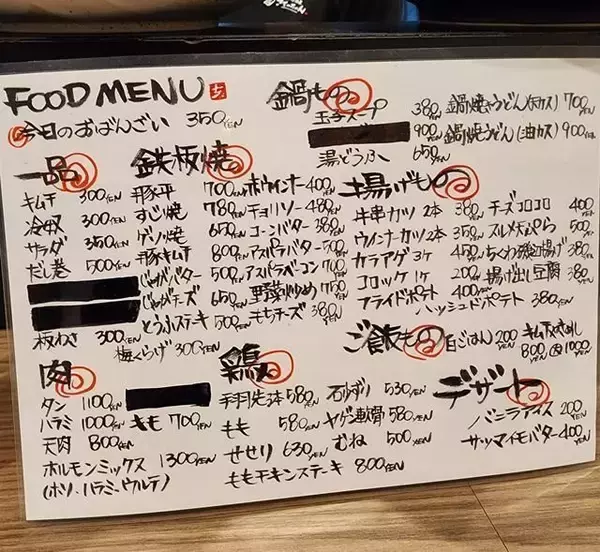 FOOD MENU
今日のおばんざい 350YEN
一品
キムチ 300YEN
冷奴 300YEN
サラダ 350YEN
だし巻 500YEN
板わさ 300YEN
梅くらげ 300YEN
鉄板焼
豚平 700YEN
すじ焼 780YEN
ゲソ焼 650YEN
豚キムチ 800YEN
じゃがバター 500YEN
じゃがチーズ 650YEN
とうふステーキ 500YEN
ホルウインナー 400YEN
チョリソー 480YEN
コーンバター 380YEN
アスパラバター 500YEN
アスパラベーコン 700YEN
野菜炒め 750YEN
もちチーズ 380YEN
鍋もの
玉子スープ 380YEN
900YEN
湯どうふ 650YEN
鍋焼うどん(天カス) 700YEN
鍋焼うどん(油カス) 900YEN
揚げもの
牛串カツ 2本 380YEN
ウインナーカツ 2本 350YEN
カラアゲ 3ケ 450YEN
コロッケ 1ケ 200YEN
フライドポテト 400YEN
チーズコロコロ 400YEN
スルメ天ぷら 500YEN
ちくわ磯辺揚げ 380YEN
揚げ出し豆腐 380YEN
ハッシュドポテト 380YEN
ご飯もの
白ごはん 200YEN
キムチ焼めし
800YEN 大1000YEN
肉
タン 1100YEN
ハラミ 1000YEN
天肉 800YEN
ホルモンミックス 1300YEN
(ホソ、ハラミ、ウルテ)
キモ 700YEN
鶏
手羽先 3本 580YEN
もも 580YEN
せせり 630YEN
ももチキンステーキ 800YEN
石ずり 530YEN
ヤゲン軟骨 580YEN
むね 500YEN
デザート
バニラアイス 200YEN
サツマイモバター 400YEN